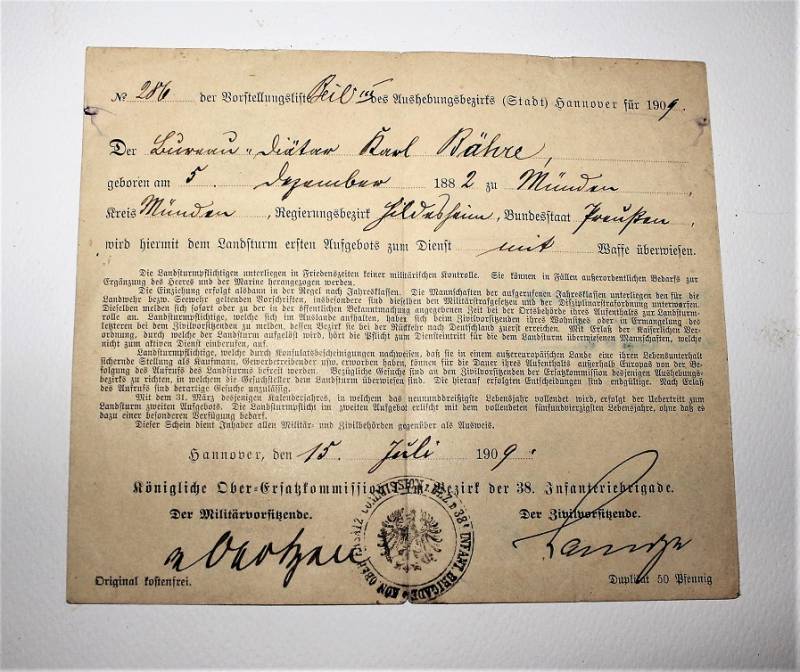 № 286 der Vorstellungsliste Teil III des Aushebungsbezirks (Stadt) Hannover für 1909.
Der Bureau-Diätar Karl Bähre,
geboren am 5. Dezember 1882 zu Münden,
Kreis Münden, Regierungsbezirk Hildesheim, Bundesstaat Preußen,
wird hiermit dem Landsturm ersten Aufgebots zum Dienst mit Waffe überwiesen.
Die Landsturmpflichtigen unterliegen in Friedenszeiten keiner militärischen Kontrolle. Sie können in Fällen außerordentlichen Bedarfs zur
Ergänzung des Heeres und der Marine herangezogen werden.
Die Einziehung erfolgt alsdann in der Regel nach Jahresklassen. Die Mannschaften der aufgerufenen Jahresklassen unterliegen den für die
Landwehr bezw. Seewehr geltenden Vorschriften, insbesondere sind dieselben den Militärstrafgesetzen und der Disziplinarstrafordnung unterworfen.
Dieselben melden sich sofort oder zu der in der öffentlichen Bekanntmachung angegebenen Zeit bei der Ortsbehörde ihres Aufenthalts zur Landsturm-
rolle an. Landsturmpflichtige, welche sich im Auslande aufhalten, haben sich beim Zivilvorsitzenden ihres Wohnsitzes oder in Ermangelung des
letzteren bei dem Zivilvorsitzenden zu melden, dessen Bezirk sie bei der Rückkehr nach Deutschland zuerst erreichen. Mit Erlaß der Kaiserlichen Ver-
ordnung, durch welche der Landsturm aufgelöst wird, hört die Pflicht zum Diensteintritt für die dem Landsturm überwiesenen Mannschaften, welche
nicht zum aktiven Dienst einberufen, auf.
Landsturmpflichtige, welche durch Konsulatsbescheinigungen nachweisen, daß sie in einem außereuropäischen Lande eine ihren Lebensunterhalt
sichernde Stellung als Kaufmann, Gewerbetreibender usw. erworben haben, können für die Dauer ihres Aufenthalts außerhalb Europas von der Be-
folgung des Aufrufs des Landsturms befreit werden. Bezügliche Gesuche sind an den Zivilvorsitzenden der Ersatzkommission desjenigen Aushebungs-
bezirks zu richten, in welchem die Gesuchsteller dem Landsturm überwiesen sind. Die hierauf erfolgten Entscheidungen sind endgültige. Nach Erlaß
des Aufrufs sind derartige Gesuche unzulässig.
Mit dem 31. März desjenigen Kalenderjahres, in welchem das neununddreißigste Lebensjahr vollendet wird, erfolgt der Uebertritt zum
Landsturm zweiten Aufgebots. Die Landsturmpflicht im zweiten Aufgebot erlischt mit dem vollendeten fünfundvierzigsten Lebensjahre, ohne daß es
dazu einer besonderen Verfügung bedarf.
Dieser Schein dient Inhaber allen Militär- und Zivilbehörden gegenüber als Ausweis.
Hannover, den 15. Juli 1909.
Königliche Ober-Ersatzkommission im Bezirk der 38. Infanteriebrigade.
Der Militärvorsitzende. Der Zivilvorsitzende.
Original kostenfrei. Duplikat 50 Pfennig